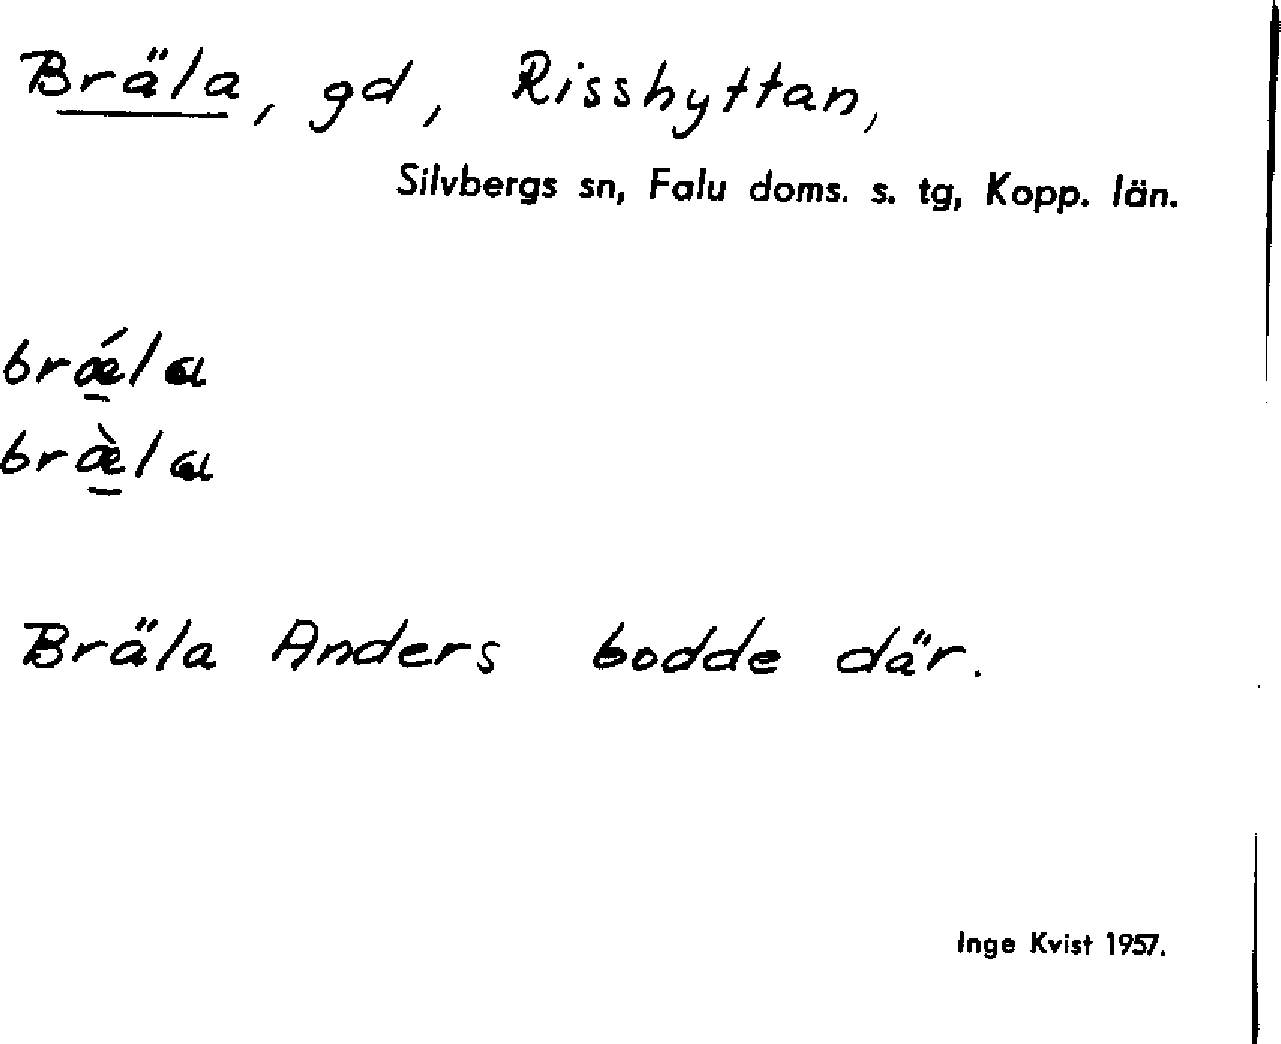 Bräla, gd, Risshyttan,
Silvbergs sn, Falu doms. s. tg, Kopp. län.
brǽ̱la
bræ̱̀la
Bräla Anders bodde där.
Inge Kvist 1957.